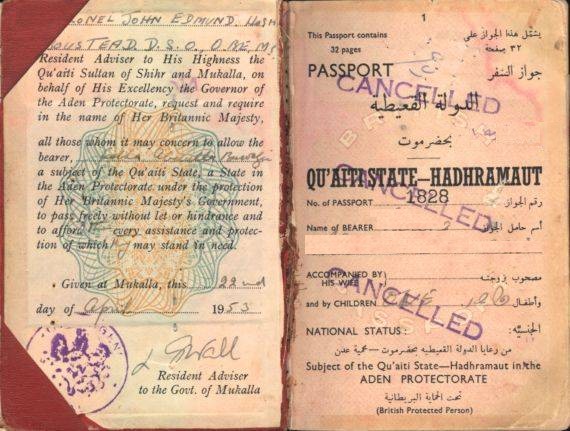 COLONEL JOHN EDMUND, HASH
HOUSTEAD. D.S.O., O.BE, M.
Resident Adviser to His Highness the
Qu'aiti Sultan of Shihr and Mukalla, on
behalf of His Excellency the Governor of
the Aden Protectorate, request and require
in the name of Her Britannic Majesty,
all those whom it may concern to allow the
bearer,
a subject of the Qu'aiti State, a State in
the Aden Protectorate under the protection
of Her Britannic Majesty's Government,
to pass freely without let or hindrance and
to afford every assistance and protec-
tion of which may stand in need.
Given at Mukalla, this 22nd
day of April 1953
Resident Adviser
to the Govt. of Mukalla
1
This Passport contains يشتمل هذا الجواز على
32 pages ٣٢ صفحة
PASSPORT جواز السفر
CANCELLED
الدولة القعيطيه
بحضرموت
CANCELLED
QU'AITI STATE—HADHRAMAUT
No. of PASSPORT 1828 رقم الجواز
Name of BEARER اسم حامل الجواز
ACCOMPANIED BY HIS WIFE مصحوب بزوجته
and by CHILDREN وأطفال
CANCELLED
NATIONAL STATUS : الجنسيه:
من رعايا الدولة القعيطيه بحضرموت - محمية عدن
Subject of the Qu'aiti State—Hadhramaut in the
ADEN PROTECTORATE
تحت الحماية البريطانية
(British Protected Person)